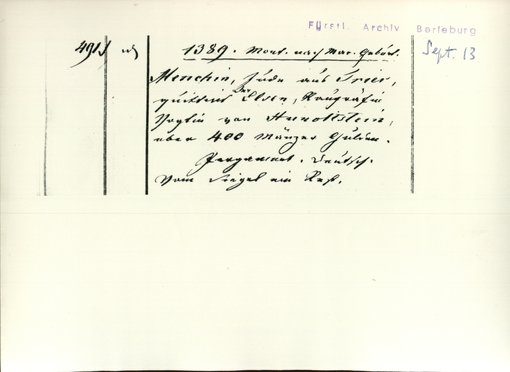 Fürstl. Archiv Berleburg
1389. Mont. nach Mar. Geburt.
Sept. 13
Menchin, Jude aus Trier,
quittirt der Elsen, Raugräfin
Vogtin von Hunoltstein,
über 400 Mainzer Gulden.
Pergament. Deutsch.
Vom Siegel ein Rest.